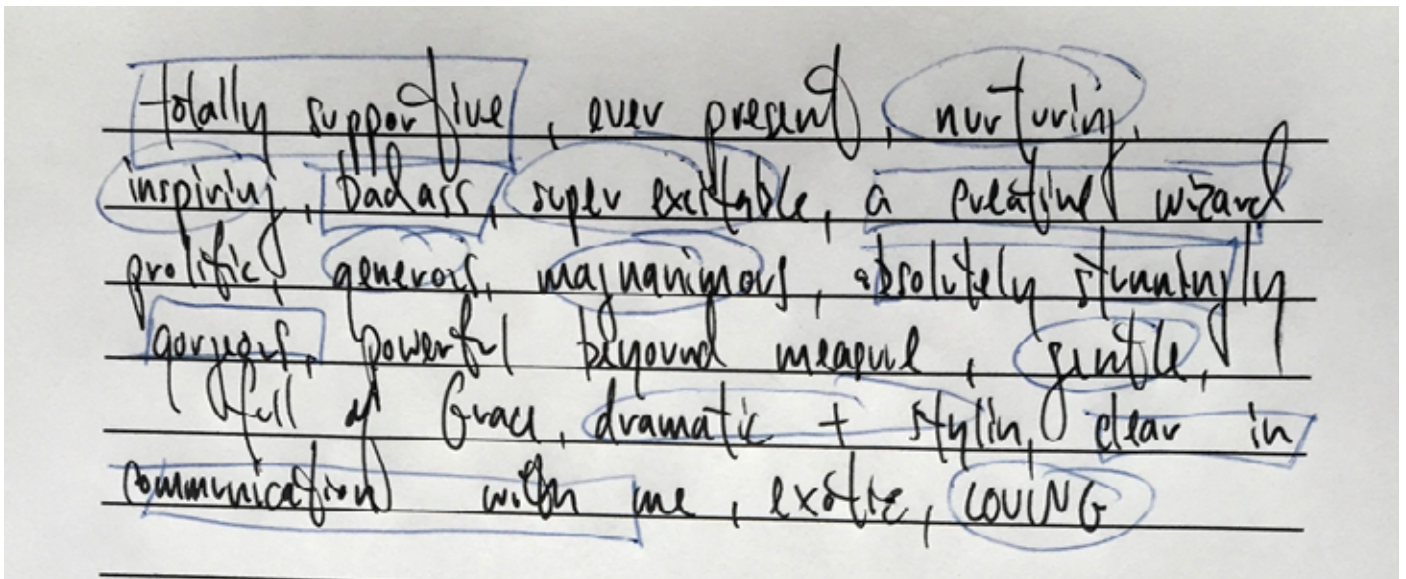 totally supportive, ever present, nurturing,
inspiring, badass, super excitable, a creative wizard
prolific, generous, magnanimous, absolutely stunningly
gorgeous, powerful beyound measure, gentle,
full of Grace, dramatic + stylin, clear in
communication with me, exotic, LOVING